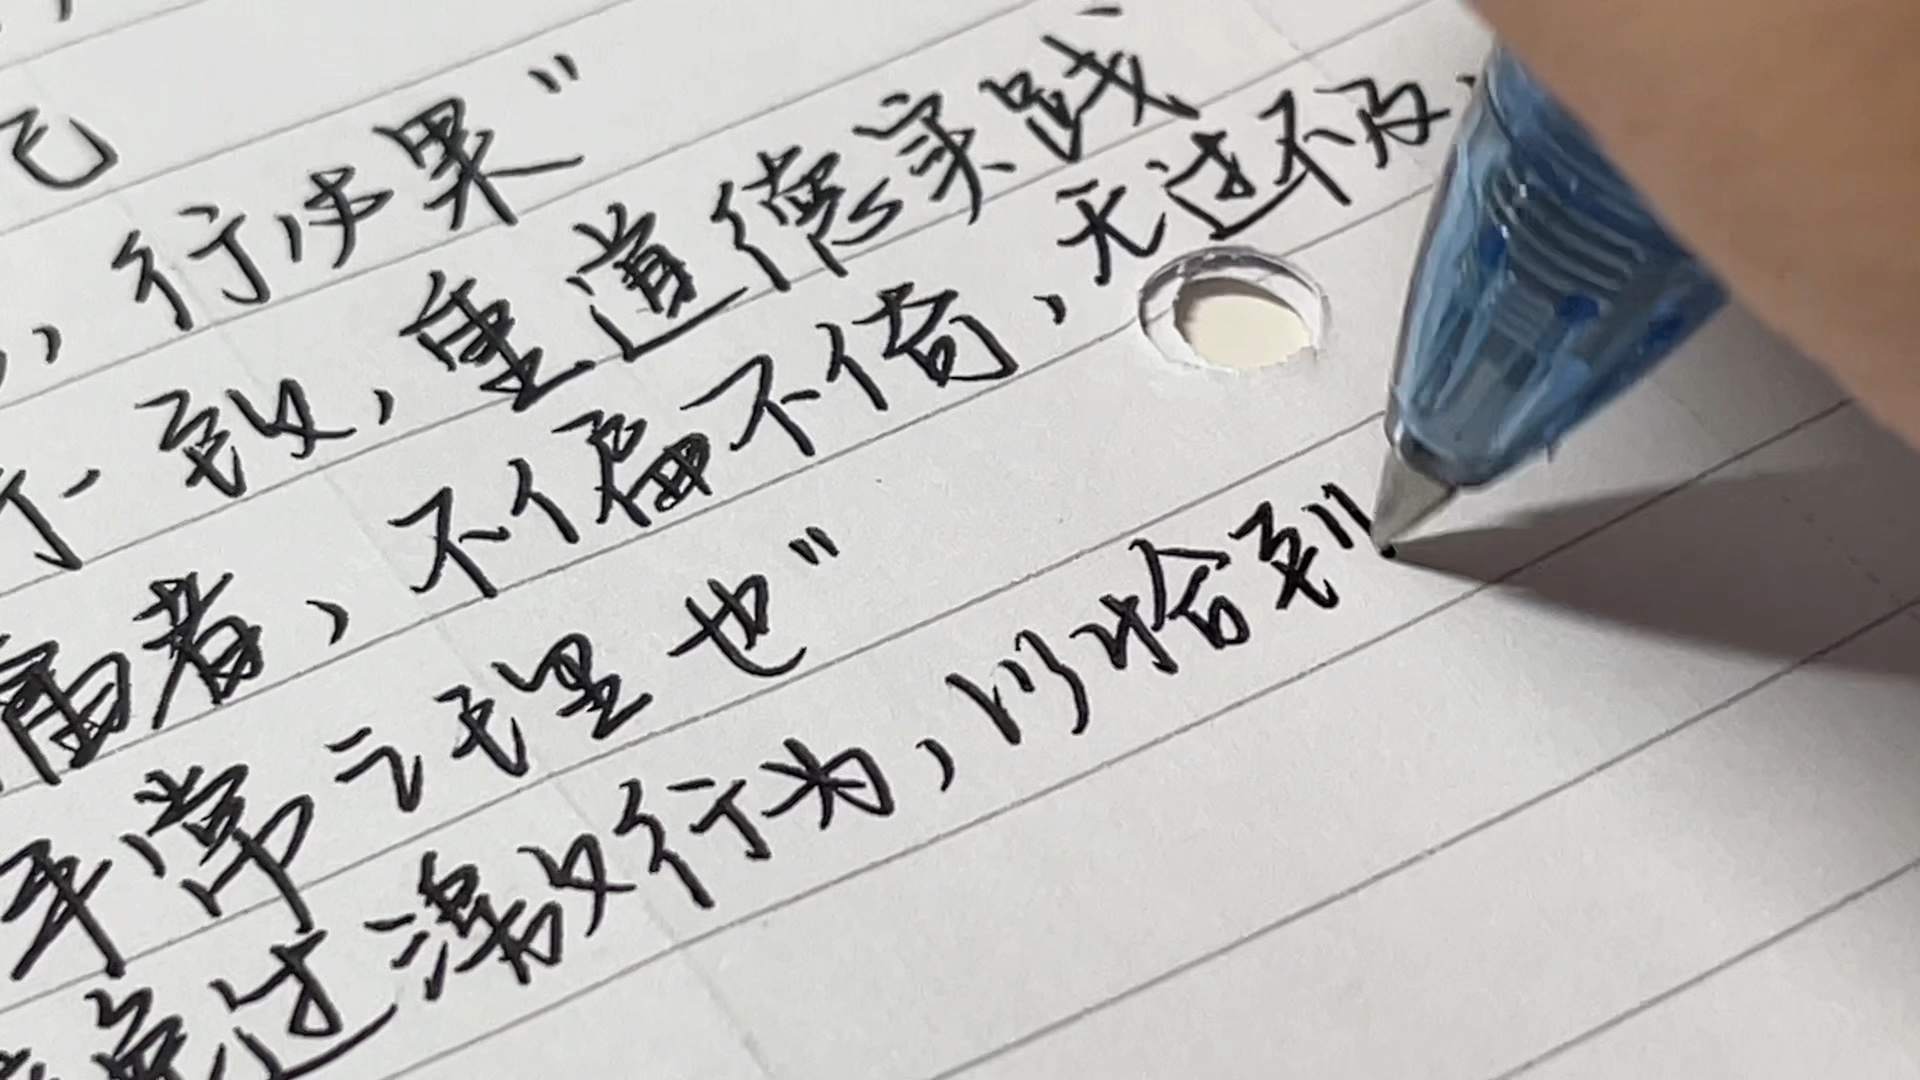 己
，行必果”
行一致，重道德实践
庸者，不偏不倚，无过不及，
平常之理也”
免过激行为，以恰到